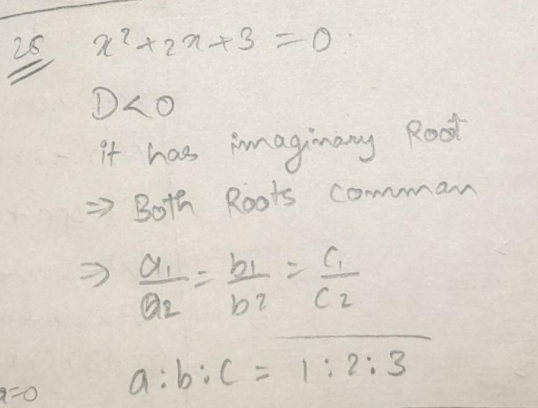 26 x²+2x+3=0
D<0
it has imaginary Root
⇒ Both Roots comman
⇒ a₁/a₂ = b₁/b₂ = c₁/c₂
a:b:c = 1:2:3
=0